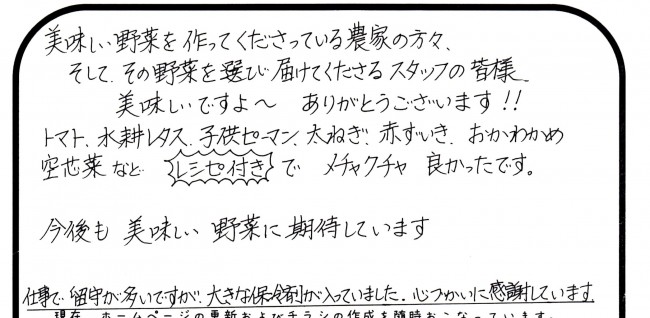 美味しい野菜を作ってくださっている農家の方々、
そして、その野菜を選び届けてくださるスタッフの皆様、
美味しいですよ～ ありがとうございます!!
トマト、水耕レタス、子供ピーマン、太ねぎ、赤ずいき、おかわかめ
空芯菜など レシピ付き で メチャクチャ 良かったです。
今後も 美味しい 野菜に期待しています
仕事で留守が多いですが、大きな保冷剤が入っていました。心づかいに感謝しています
現在、ホームページの更新およびチラシの作成を随時おこなっています。